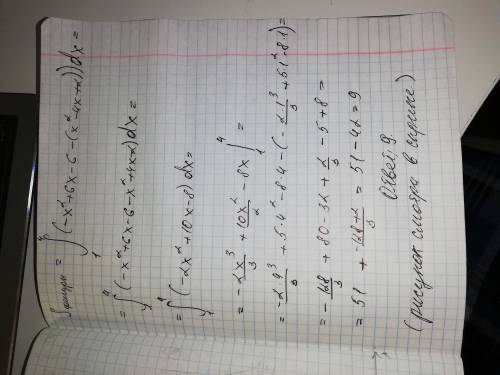 Sфигуры = ∫₁⁴ (-x²+6x-6-(x²-4x+2))dx =
= ∫₁⁴ (-x²+6x-6-x²+4x-2)dx =
= ∫₁⁴ (-2x²+10x-8)dx =
= -2x³/3 + 10x²/2 - 8x |₁⁴ =
= -2·4³/3 + 5·4² - 8·4 - (-2·1³/3 + 5·1² - 8·1) =
= -128/3 + 80 - 32 + 2/3 - 5 + 8 =
= 51 + -128+2/3 = 51 - 42 = 9
Ответ 9.
(рисунок смотри в скрине)